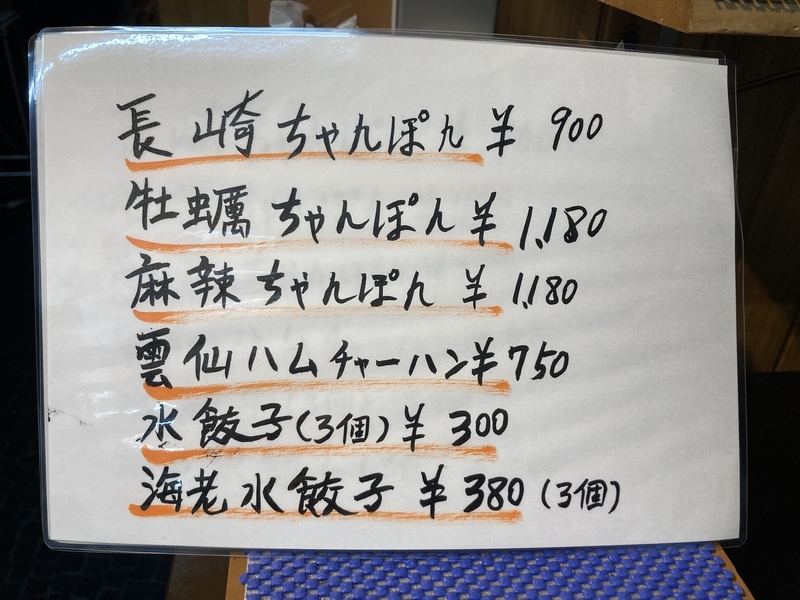 長崎ちゃんぽん ¥ 900
牡蠣ちゃんぽん ¥ 1,180
麻辣ちゃんぽん ¥ 1,180
雲仙ハムチャーハン ¥ 750
水餃子(3個) ¥ 300
海老水餃子 ¥ 380 (3個)